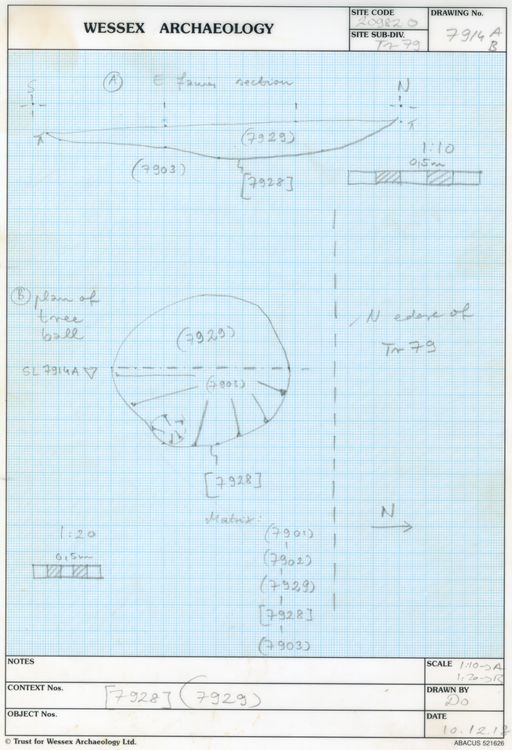 WESSEX ARCHAEOLOGY
SITE CODE
209820
SITE SUB-DIV.
Tr 79
DRAWING No.
7914 A
B
A E facing section
S
N
(7929)
(7903)
[7928]
1:10
0,5m
B plan of
tree
ball
(7929)
N edge of
Tr 79
SL 7914A
(7903)
[7928]
N
Matrix:
(7901)
(7902)
(7929)
[7928]
(7903)
1:20
0,5m
NOTES
SCALE 1:10->A
1:20->B
CONTEXT Nos. [7928] (7929)
DRAWN BY
Do
OBJECT Nos.
DATE
10.12.
© Trust for Wessex Archaeology Ltd.
ABACUS 521626